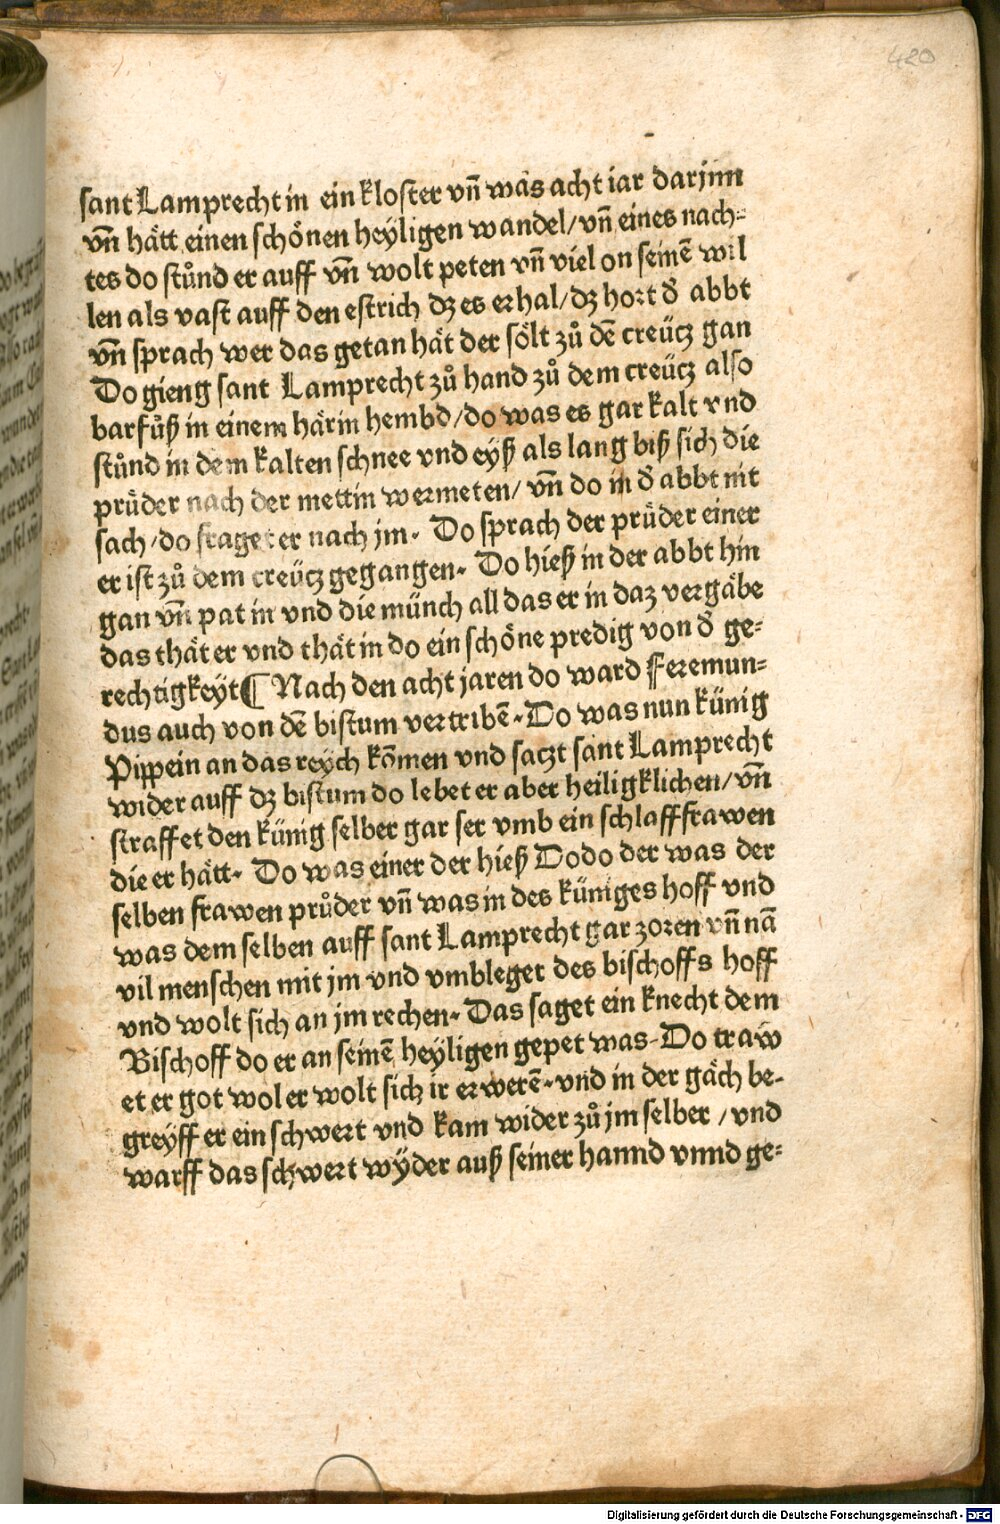 420
sant Lamprecht in ein kloster vn̄ was acht iar darjnn
vn̄ hätt einen schönen heyligen wandel/ vn̄ eines nach⸗
tes do stůnd er auff vn̄ wolt peten vn̄ viel on seinē wil
len als vast auff den estrich dz es erhal/ dz hort d̄ abbt
vn̄ sprach wer das getan hät der sölt zů dē creücz gan
Do gieng sant Lamprecht zů hand zů dem creücz also
barfůß in einem härin hembd/ do was es gar kalt vnd
stůnd in dem kalten schnee vnd eyß als lang biß sich die
průder nach der mettin wermeten/ vn̄ do in d̄ abbt nit
sach/ do fraget er nach jm. Do sprach der průder einer
er ist zů dem creücz gegangen. Do hieß in der abbt hin
gan vn̄ pat in vnd die münch all das er in daz vergäbe
das thät er vnd thät in do ein schöne predig von d̄ ge⸗
rechtigkeyt¶ Nach den acht jaren do ward Feremun⸗
dus auch von dē bistum vertribē. Do was nun künig
Pippein an das reych kōmen vnd saczt sant Lamprecht
wider auff dz bistum do lebet er aber heiligklichen/ vn̄
straffet den künig selber gar ser vmb ein schlaffrawen
die er hätt. Do was einer der hieß Dodo der was der
selben frawen průder vn̄ was in des küniges hoff vnd
was dem selben auff sant Lamprecht gar zoren vn̄ nā
vil menschen mit jm vnd vmbleget des bischoffs hoff
vnd wolt sich an jm rechen. Das saget ein knecht dem
Bischoff do er an seinē heyligen gepet was. Do traw
et er got wol er wolt sich ir erwerē. vnd in der gäch be⸗
greyff er ein schwert vnd kam wider zů jm selber / vnd
warff das schwert wyder auß seiner hannd vnnd ge⸗
Digitalisierung gefördert durch die Deutsche Forschungsgemeinschaft - DFG